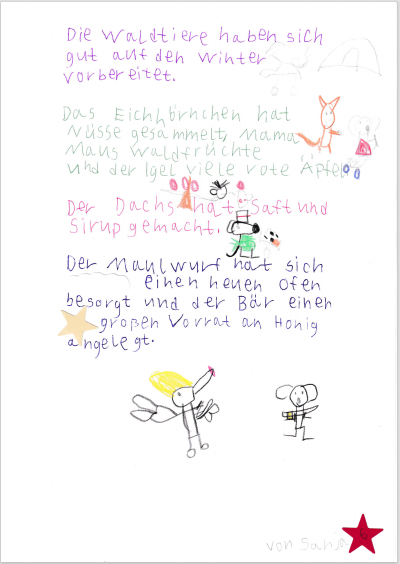 Die Waldtiere haben sich
gut auf den Winter
vorbereitet.
Das Eichhörnchen hat
Nüsse gesammelt, Mama
Maus Waldfrüchte
und der Igel viele rote Äpfel.
Der Dachs hat Saft und
Sirup gemacht.
Der Maulwurf hat sich
einen neuen Ofen
besorgt und der Bär einen
großen Vorrat an Honig
angelegt.
von